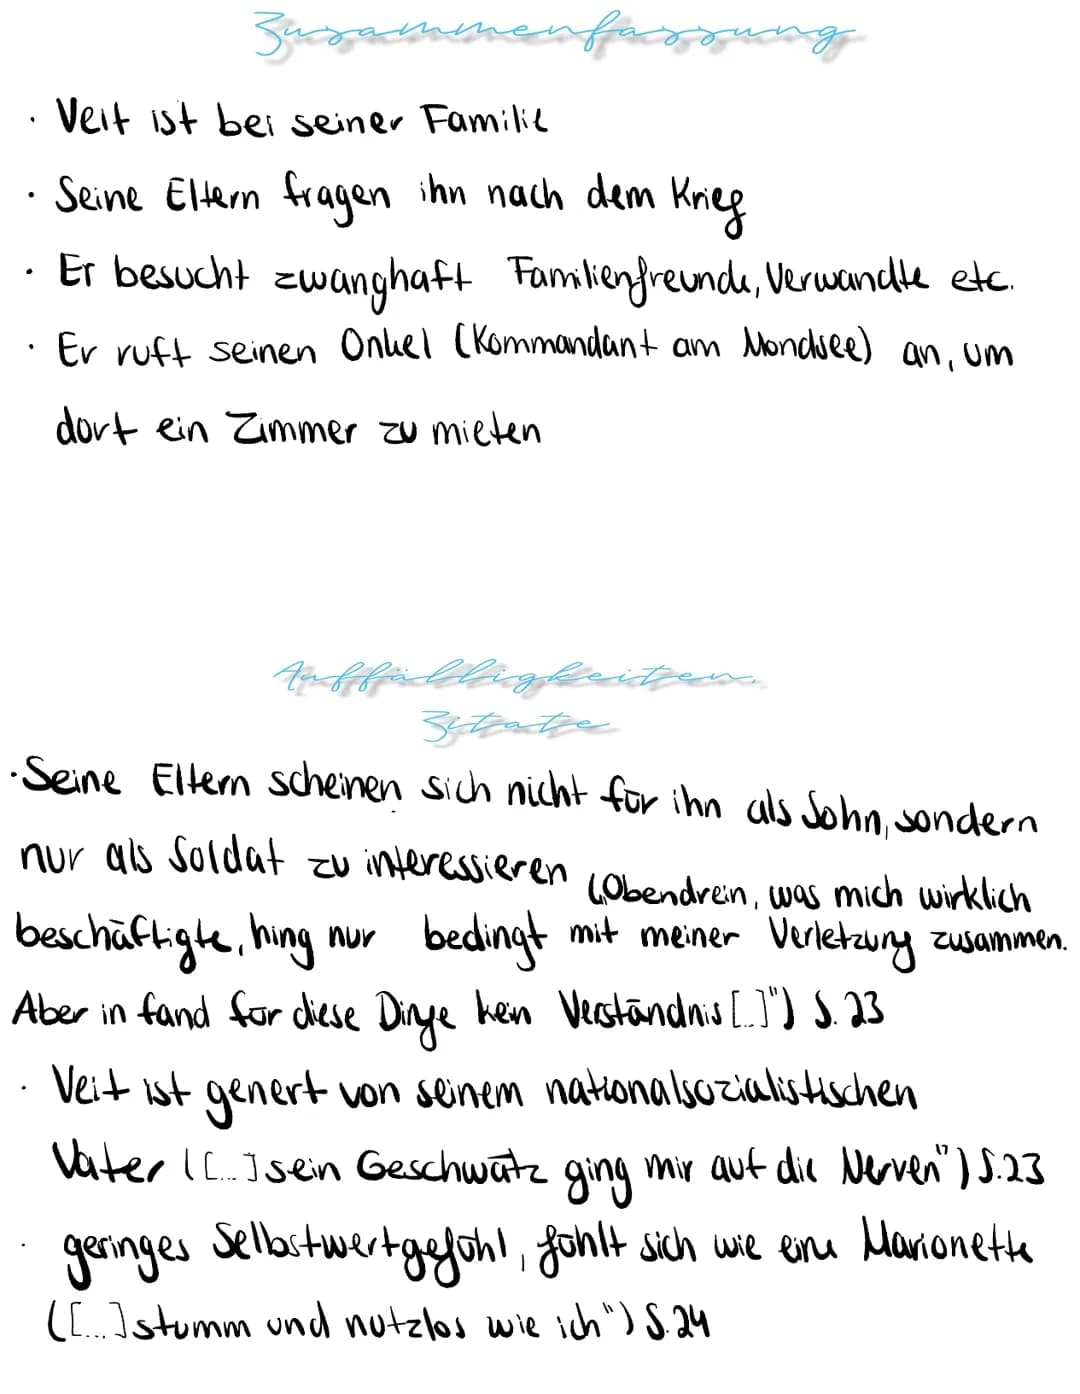 Zusammenfassung
· Veit ist bei seiner Familie
· Seine Eltern fragen ihn nach dem Krieg
· Er besucht zwanghaft Familienfreunde, Verwandte etc.
· Er ruft seinen Onkel (Kommandant am Mondsee) an, um
dort ein Zimmer zu mieten
Auffälligkeiten,
Zitate
· Seine Eltern scheinen sich nicht für ihn als Sohn, sondern
nur als Soldat zu interessieren („Obendrein, was mich wirklich
beschäftigte, hing nur bedingt mit meiner Verletzung zusammen.
Aber in fand für diese Dinge kein Verständnis [...]") S. 23
· Veit ist genert von seinem nationalsozialistischen
Vater ([...] sein Geschwätz ging mir auf die Nerven") S.23
· geringes Selbstwertgefühl, fühlt sich wie eine Marionette
([...] stumm und nutzlos wie ich") S. 24